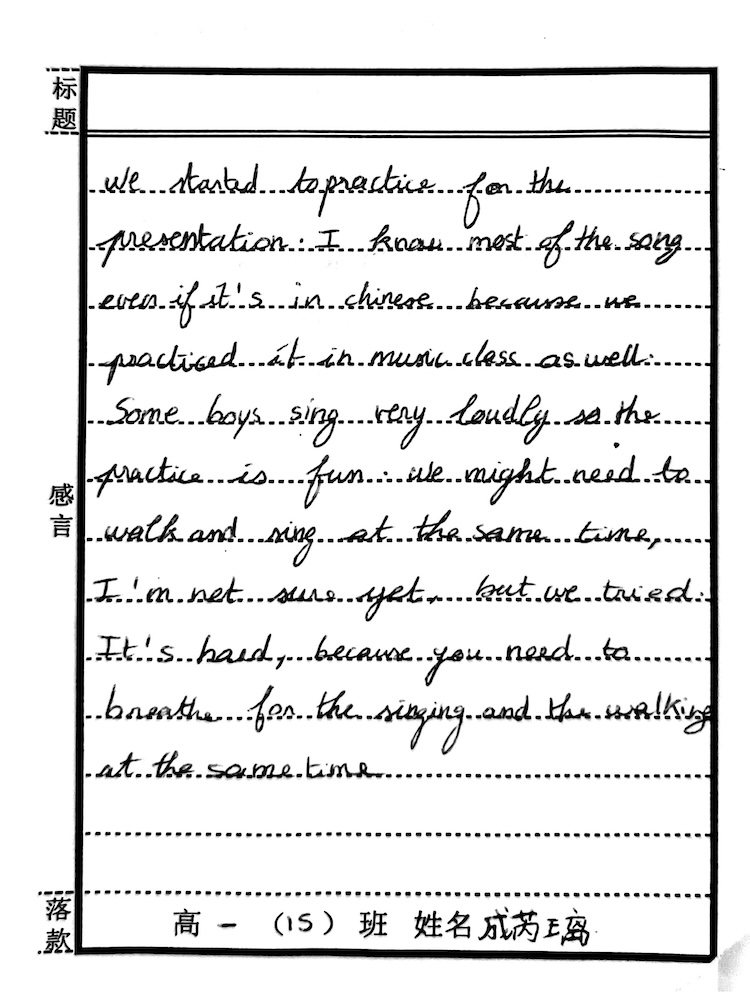 标题
we started to practice for the
presentation. I know most of the song
even if it's in chinese because we
practiced it in music class as well.
Some boys sing very loudly so the
practice is fun. we might need to
walk and sing at the same time,
I'm not sure yet, but we tried.
It's hard, because you need to
breathe for the singing and the walking
at the same time
感言
落款
高一 (15) 班 姓名 成芮璃